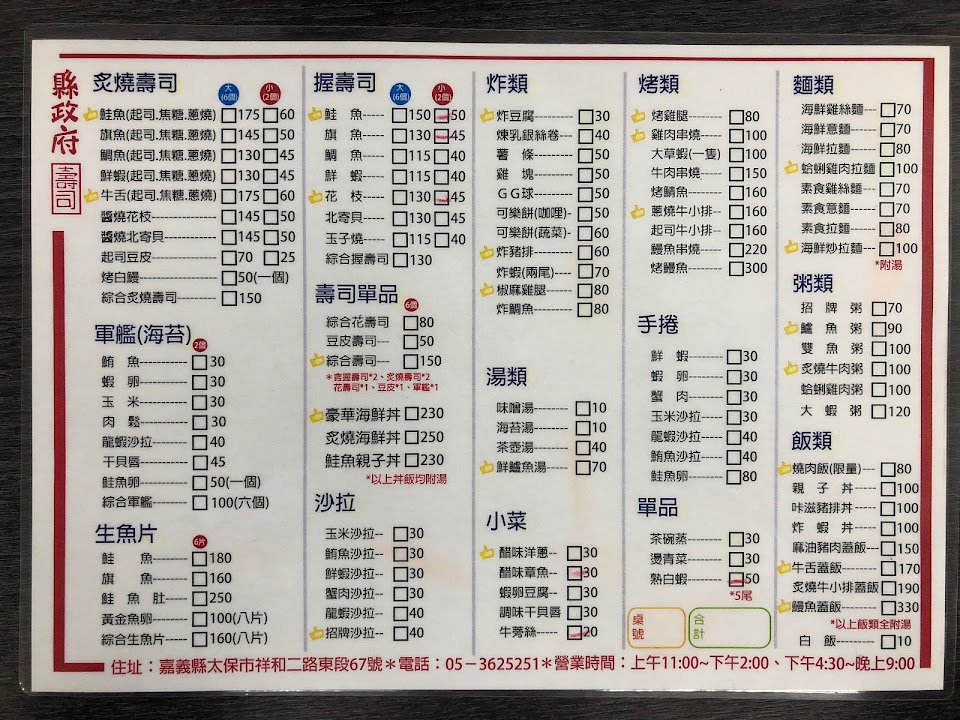 縣政府
壽司
炙燒壽司
大(6個) 小(2個)
鮭魚(起司.焦糖.蔥燒)□175□60
旗魚(起司.焦糖.蔥燒)□145□50
鯛魚(起司.焦糖.蔥燒)□130□45
鮮蝦(起司.焦糖.蔥燒)□130□45
牛舌(起司.焦糖.蔥燒)□175□60
醬燒花枝□145□50
醬燒北寄貝□145□50
起司豆皮□70□25
烤白鰻□50(一個)
綜合炙燒壽司□150
軍艦(海苔)
2個
鮪 魚□30
蝦 卵□30
玉 米□30
肉 鬆□30
龍蝦沙拉□40
干貝唇□45
鮭魚卵□50(一個)
綜合軍艦□100(六個)
生魚片
6片
鮭 魚□180
旗 魚□160
鮭 魚 肚□250
黃金魚卵□100(八片)
綜合生魚片□160(八片)
握壽司
大(6個) 小(2個)
鮭 魚□150□50
旗 魚□130□45
鯛 魚□115□40
鮮 蝦□115□40
花 枝□130□45
北寄貝□130□45
玉子燒□115□40
綜合握壽司□130
壽司單品
6個
綜合花壽司□80
豆皮壽司□50
綜合壽司□150
＊含握壽司*2、炙燒壽司*2
花壽司*1、豆皮*1、軍艦*1
豪華海鮮丼□230
炙燒海鮮丼□250
鮭魚親子丼□230
*以上丼飯均附湯
沙拉
玉米沙拉□30
鮪魚沙拉□30
鮮蝦沙拉□30
蟹肉沙拉□30
龍蝦沙拉□40
招牌沙拉□40
炸類
炸豆腐□30
煉乳銀絲卷□40
薯 條□50
雞 塊□50
ＧＧ球□50
可樂餅(咖哩)□50
可樂餅(蔬菜)□60
炸豬排□60
炸蝦(兩尾)□70
椒麻雞腿□80
炸鯛魚□80
湯類
味噌湯□10
海苔湯□10
茶壺湯□40
鮮鱸魚湯□70
小菜
醋味洋蔥□30
醋味章魚□30
蝦卵豆腐□30
調味干貝唇□30
牛蒡絲□20
烤類
烤雞腿□80
雞肉串燒□100
大草蝦(一隻)□100
牛肉串燒□150
烤鯖魚□160
蔥燒牛小排□160
起司牛小排□160
鰻魚串燒□220
烤鰻魚□300
手捲
鮮 蝦□30
蝦 卵□30
蟹 肉□30
玉米沙拉□30
龍蝦沙拉□40
鮪魚沙拉□40
鮭魚卵□80
單品
茶碗蒸□30
燙青菜□30
熟白蝦□50
*5尾
桌號
合計
麵類
海鮮雞絲麵□70
海鮮意麵□70
海鮮拉麵□80
蛤蜊雞肉拉麵□100
素食雞絲麵□70
素食意麵□70
素食拉麵□80
海鮮炒拉麵□100
*附湯
粥類
招 牌 粥□70
鱸 魚 粥□90
雙 魚 粥□100
炙燒牛肉粥□100
蛤蜊雞肉粥□100
大 蝦 粥□120
飯類
燒肉飯(限量)□80
親 子 丼□100
咔滋豬排丼□100
炸 蝦 丼□100
麻油豬肉蓋飯□150
牛舌蓋飯□170
炙燒牛小排蓋飯□190
鰻魚蓋飯□330
*以上飯類全附湯
白 飯□10
住址：嘉義縣太保市祥和二路東段67號＊電話：05－3625251＊營業時間：上午11:00~下午2:00、下午4:30~晚上9:00